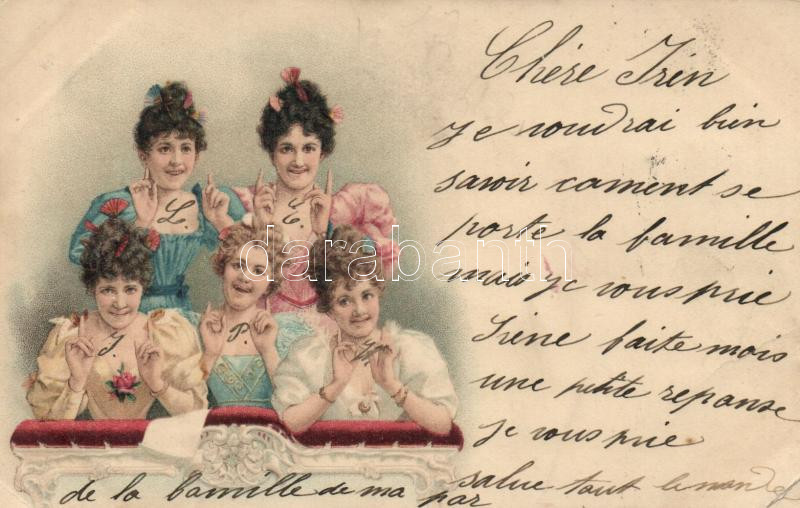 Chére Irén
je voudrai bien
savoir cament se
porte la bamille
mais je vous prie
Iréne faite mois
une petite reponse
je vous prie
salue tout le monde
de la bamille de ma par
L.
C
J
P.
darabanth